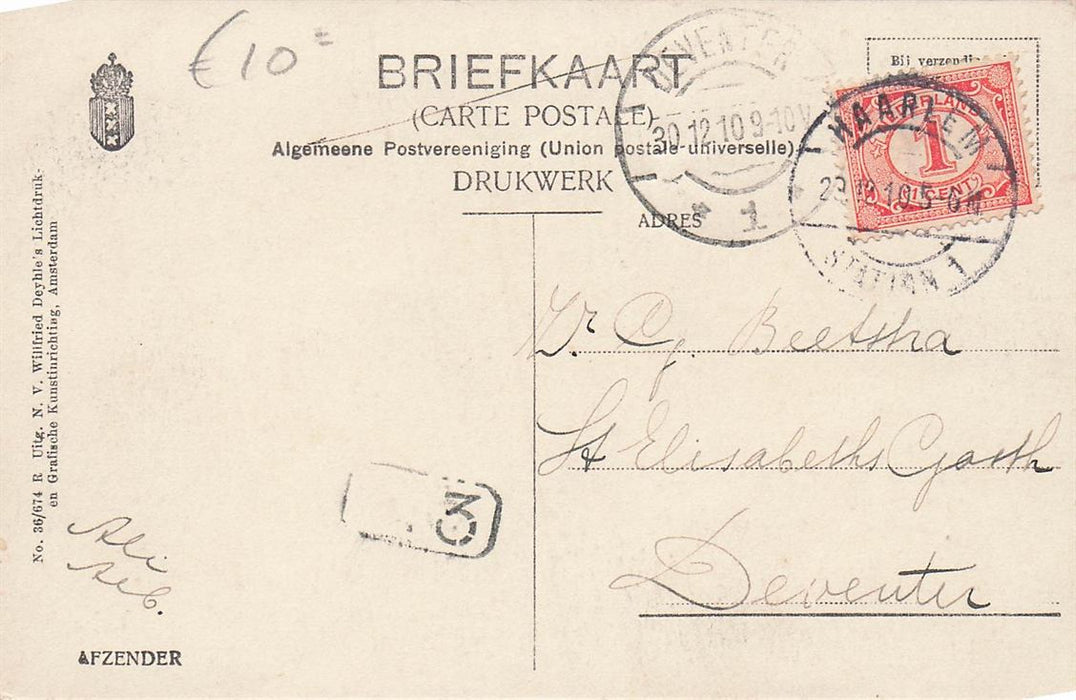 €10=
BRIEFKAART
(CARTE POSTALE)
Algemeene Postvereeniging (Union postale universelle)
DRUKWERK
ADRES
Bij verzendi
DEVENTER
30.12.10 9-10V
1
NEDERLAND
1
CENT
HAARLEM
29.12.10.5-6N
STATION 1
Cj. Beetstra
St Elisabeths Gasth
Deventer
3
No. 36/674 R Uitg. N. V. Willfried Deyhle's Lichtdruk-
en Grafische Kunstinrichting, Amsterdam
AFZENDER